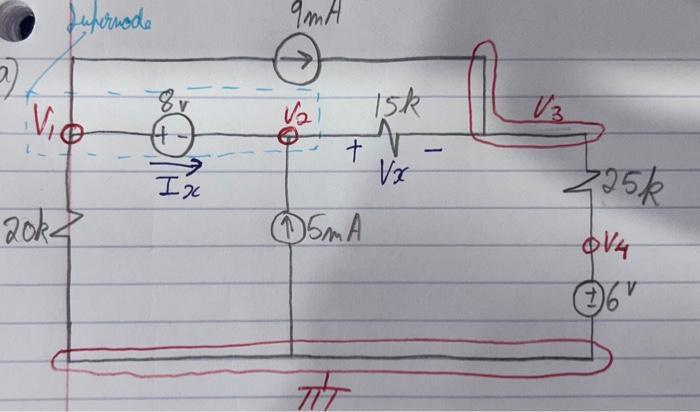 Supernode
9mA
a)
8v
V1
+ -
V2
15k
V3
+ Vx -
Ix
25k
20k
5mA
V4
± 6v